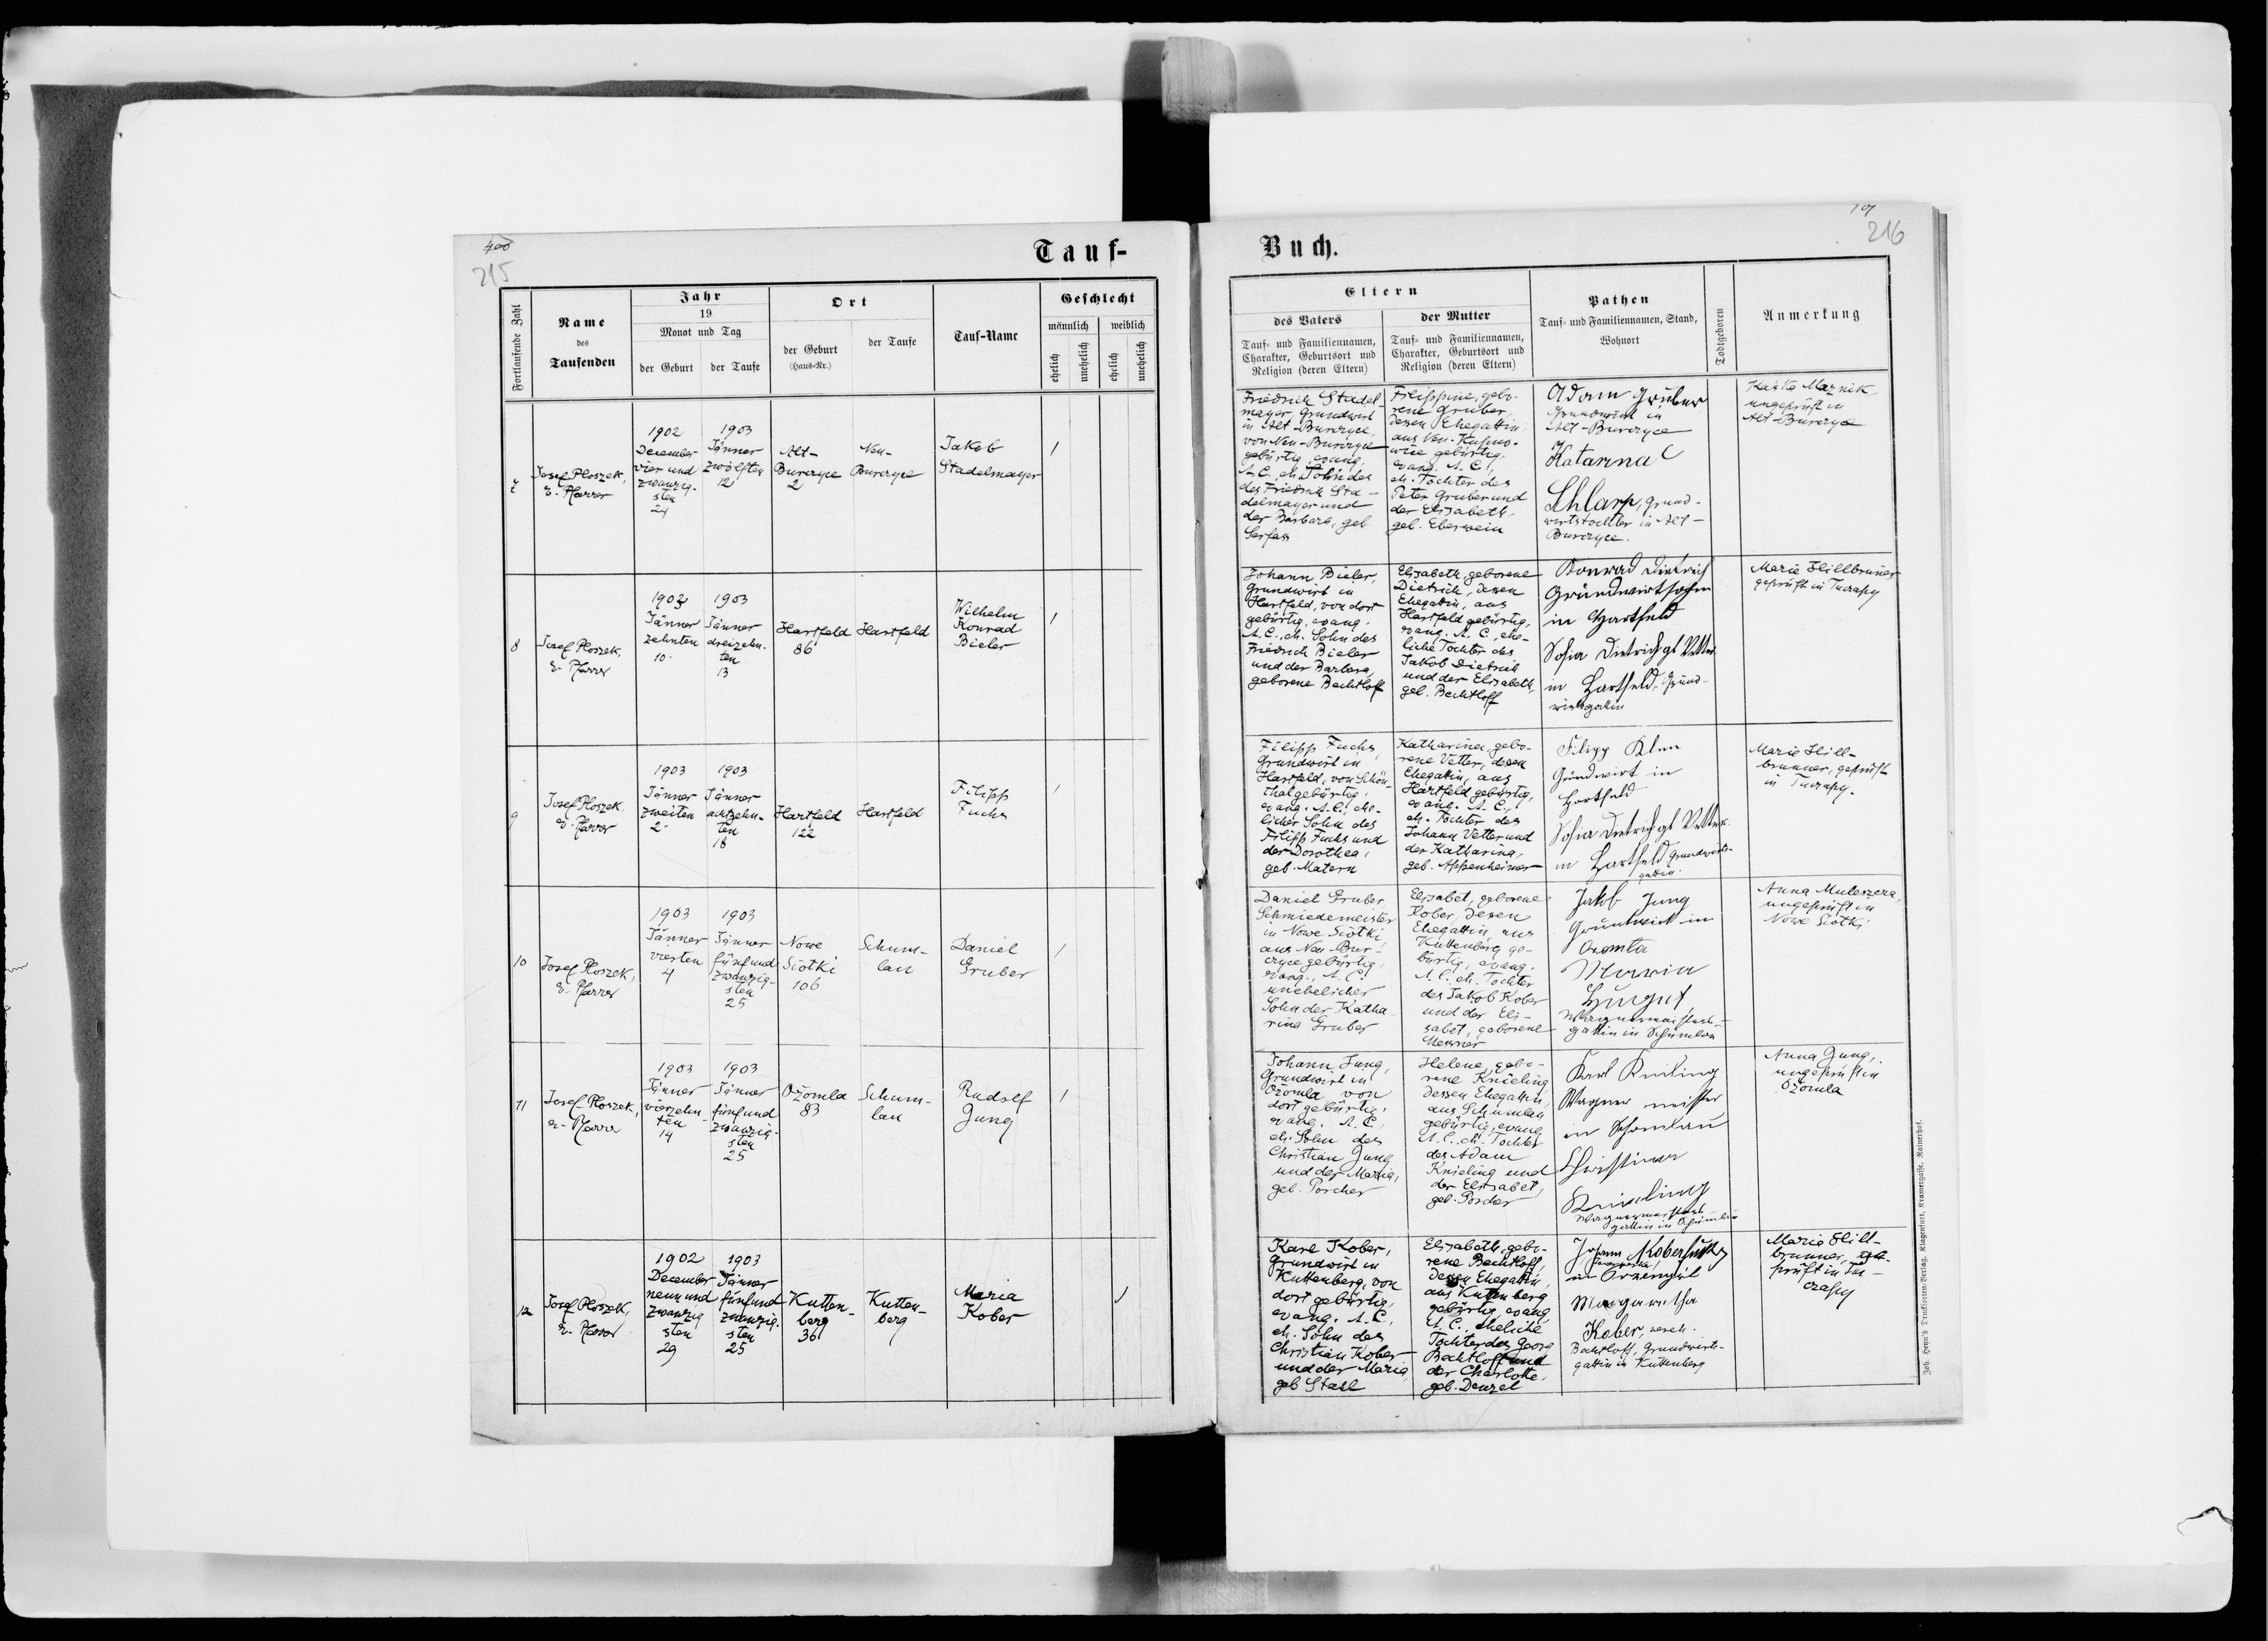 215
Tauf-
Fortlaufende Zahl
Name
des
Taufenden
Jahr
19
Monat und Tag
der Geburt
der Taufe
Ort
der Geburt
(Haus-Nr.)
der Taufe
Tauf-Name
Geschlecht
männlich
weiblich
ehelich
unehelich
ehelich
unehelich
7
Josef Ploszek,
ev. Pfarrer
1902
December
vier und
zwanzig-
sten
24
1903
Jänner
zwölften
12
Alt-
Burczyce
2
Neu-
Burczyce
Jakob
Stadelmayer
8
Josef Ploszek,
ev. Pfarrer
1903
Jänner
zehnten
10
1903
Jänner
dreizehn-
ten
13
Hartfeld
86
Hartfeld
Wilhelm
Konrad
Bieler
9
Josef Ploszek
ev. Pfarrer
1903
Jänner
zweiten
2
1903
Jänner
achtzehn-
ten
18
Hartfeld
122
Hartfeld
Filipp
Fuchs
10
Josef Ploszek,
ev. Pfarrer
1903
Jänner
vierten
4
1903
Jänner
fünfund
zwanzig-
sten
25
Nowe
Siołki
106
Schum-
lau
Daniel
Gruber
11
Josef Ploszek,
ev. Pfarrer
1903
Jänner
vierzehn
ten
14
1903
Jänner
fünfund
zwanzig-
sten
25
Ożomla
83
Schum-
lau
Rudolf
Jung
12
Josef Ploszek,
ev. Pfarrer
1902
December
neunund
zwanzig
sten
29
1903
Jänner
fünfund
zwanzig-
sten
25
Kutten-
berg
36
Kutten-
berg
Maria
Kober
Buch.
216
Eltern
des Vaters
Tauf- und Familiennamen,
Charakter, Geburtsort und
Religion (deren Eltern)
der Mutter
Tauf- und Familiennamen,
Charakter, Geburtsort und
Religion (deren Eltern)
Pathen
Tauf- und Familiennamen, Stand,
Wohnort
Todtgeboren
Anmerkung
Friedrich Stadel-
mayer, Grundwirt
in Alt-Burczyce,
von Neu-Burczyce
gebürtig, evang.
A.C., eh. Sohn des
des Friedrich Sta-
delmayer und
der Barbara, geb.
Serfass
Filippine, gebo-
rene Gruber,
dessen Ehegattin,
aus Neu-Kupno-
wice gebürtig,
evang. A.C.,
eh. Tochter des
Peter Gruber und
der Elisabeth,
geb. Eberwein
Adam Gruber
Grundwirt in
Alt-Burczyce
Katarina
Schlarp, Grund-
wirtstochter in Alt-
Burczyce.
Maznik
ungeprüft in
Alt-Burczyce
Johann Bieler,
Grundwirt in
Hartfeld, von dort
gebürtig, evang.
A.C., eh. Sohn des
Friedrich Bieler
und der Barbara,
geborene Bechtloff
Elisabeth, geborene
Dietrich, dessen
Ehegattin, aus
Hartfeld gebürtig,
evang. A.C., ehe-
liche Tochter des
Jakob Dietrich
und der Elisabeth,
geb. Bechtloff
Konrad Dietrich
Grundwirtssohn
in Hartfeld
Sofia Dietrich gb Vetter
in Hartfeld, Grund-
wirtsgattin
Marie Hillbrunner
geprüft in Tuczapy
Filipp Fuchs,
Grundwirt in
Hartfeld, von Schön-
thal gebürtig,
evang. A.C., ehe-
licher Sohn des
Filipp Fuchs und
der Dorothea,
geb. Matern
Katharina, gebo-
rene Vetter, dessen
Ehegattin, aus
Hartfeld gebürtig,
evang. A.C.,
eh. Tochter des
Johann Vetter und
der Katharina,
geb. Appenheimer
Filipp
Grundwirt in
Hartfeld
Sofia Dietrich gb Vetter
in Hartfeld Grundwirts-
gattin
Marie Hill-
brunner, geprüft
in Tuczapy.
Daniel Gruber,
Schmiedemeister
in Nowe Siołki,
aus Neu-Bur-
czyce gebürtig,
evang. A.C.
unehelicher
Sohn der Katha-
rina Gruber
Elisabet, geborene
Kober, dessen
Ehegattin aus
Kuttenberg ge-
bürtig, evang.
A.C. eh. Tochter
des Jakob Kober
und der Eli-
sabet, geborene
Messner
Jakob Jung
Grundwirt in
Maria
Wagnermeisters-
gattin in Schumlau
Anna Muleszera,
ungeprüft in
Nowe Siołki
Johann Jung,
Grundwirt in
Ożomla von
dort gebürtig,
evang. A.C.,
eh. Sohn des
Christian Jung
und der Maria,
geb. Porscher
Helene, gebo-
rene Knieling
dessen Ehegattin,
aus Schumlau
gebürtig, evang.
A.C. eh. Tochter
des Adam
Knieling und
der Elisabet,
geb. Porscher
Karl Knieling
Wagner meister
in Schomlau
Christina
Knieling
Wagnermeisters-
gattin in Schumlau
Anna Jung,
ungeprüft in
Ożomla
Karl Kober,
Grundwirt in
Kuttenberg, von
dort gebürtig,
evang. A.C.,
eh. Sohn des
Christian Kober
und der Maria,
geb Stall
Elisabeth, gebo-
rene Bechtloff,
dessen Ehegattin
aus Kuttenberg
gebürtig, evang.
A.C., eheliche
Tochter des Georg
Bechtloff und
der Charlotte,
geb. Denzel
Johann
in
Margaretha
Kober, vereh.
Bechtloff, Grundwirts-
gattin in Kuttenberg
Marie Hill-
brunner, ge-
prüft in Tu-
czapy
Joh. Heyn's Drucksorten-Verlag, Klagenfurt, Kramergasse, Rainerhof.